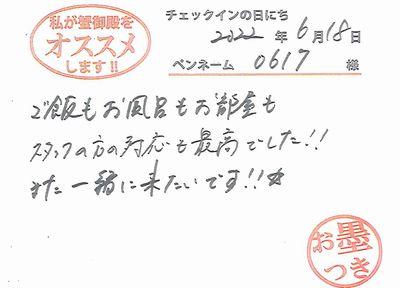 私が蟹御殿を
オススメ
します!!
チェックインの日にち
2022 年 6月18日
ペンネーム 0617 様
ご飯もお風呂もお部屋も
スタッフの方の対応も最高でした!!
また一緒に来たいです!!☆
お墨
つき